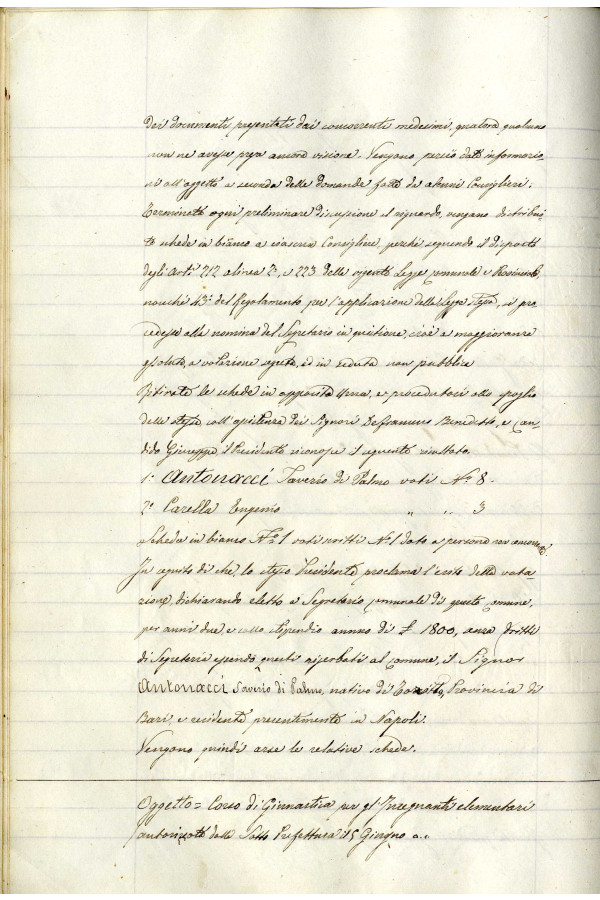 Dei documenti presentati dai concorrenti medesimi, qualora qualcuno
non ne avesse presa ancora visione. Vengono perciò date informazio-
ni all'oggetto a seconda delle domande fatte da alcuni Consiglieri.
Terminata ogni preliminare discussione al riguardo, vengano distribui-
te schede in bianco a ciascun Consigliere, perchè seguendo il disposto
degli Art.i 212 alinea 2°, e 223 della vigente Legge comunale e Provinciale
nonchè 43 del Regolamento per l'applicazione della Legge stessa, si pro-
cedesse alla nomina del Segretario in quistione, cioè a maggioranza
assoluta, a votazione segreta, ed in seduta non pubblica
Ritirate le schede in apposita Urna, e procedutosi allo spoglio
delle stesse coll'assistenza dei Signori Defrancesco Benedetto, e Can-
dido Giuseppe il Presidente riconosce il seguente risultato.
1° Antonacci Saverio di Palmo voti N° 8.
2° Carella Eugenio " " 3
Scheda in bianco N° 1 voti scritti N° 1 dato a persona non concorrente
In seguito di che, lo stesso Presidente proclama l'esito della vota-
zione, dichiarando eletto a Segretario comunale di questo comune,
per anni due, e collo stipendio annuo di £ 1800, senza dritti
di Segreteria essendo questi riserbati al comune, il Signor
Antonacci Saverio di Palmo, nativo di Toritto, Provincia di
Bari, e residente presentimente in Napoli.
Vengono quindi arse le relative schede.
Oggetto = Corso di Ginnastica per gl'Insegnanti elementari
autorizzato dalla Sotto Prefettura il 5 Giugno a.c.